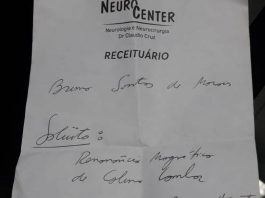 NEURO
CENTER
Neurologia e Neurocirurgia
Dr Claudio Cruz
RECEITUÁRIO
Bruno Santos de Moraes
Solicito :
Ressonância Magnética
de Coluna Lombar